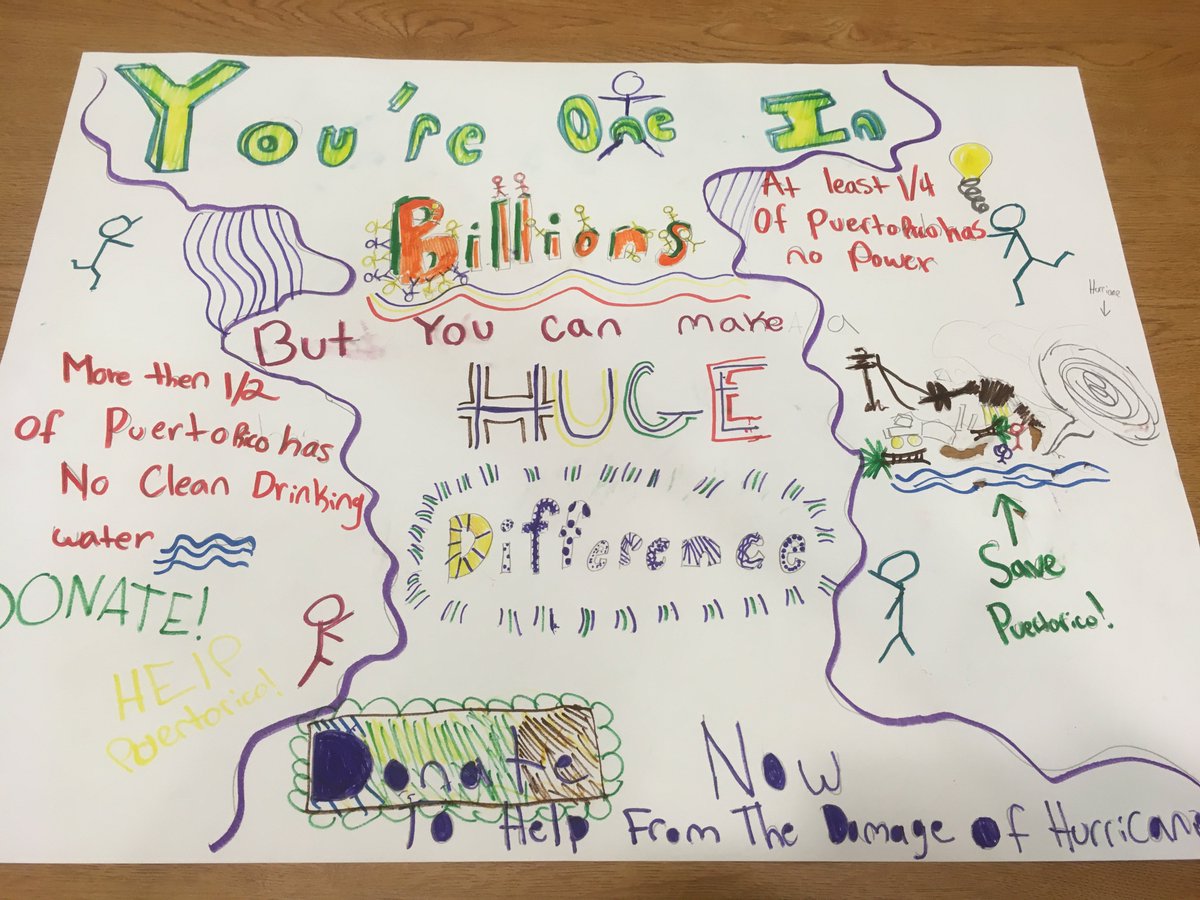 You're One In
Billions
But You can make a
HUGE
Difference
At least 1/4
Of PuertoRico has
no Power
More then 1/2
Of PuertoRico has
No Clean Drinking
water
DONATE!
HELP
Puertorico!
Hurricane
Save
Puertorico!
Donate Now
To Help From The Damage of Hurricane